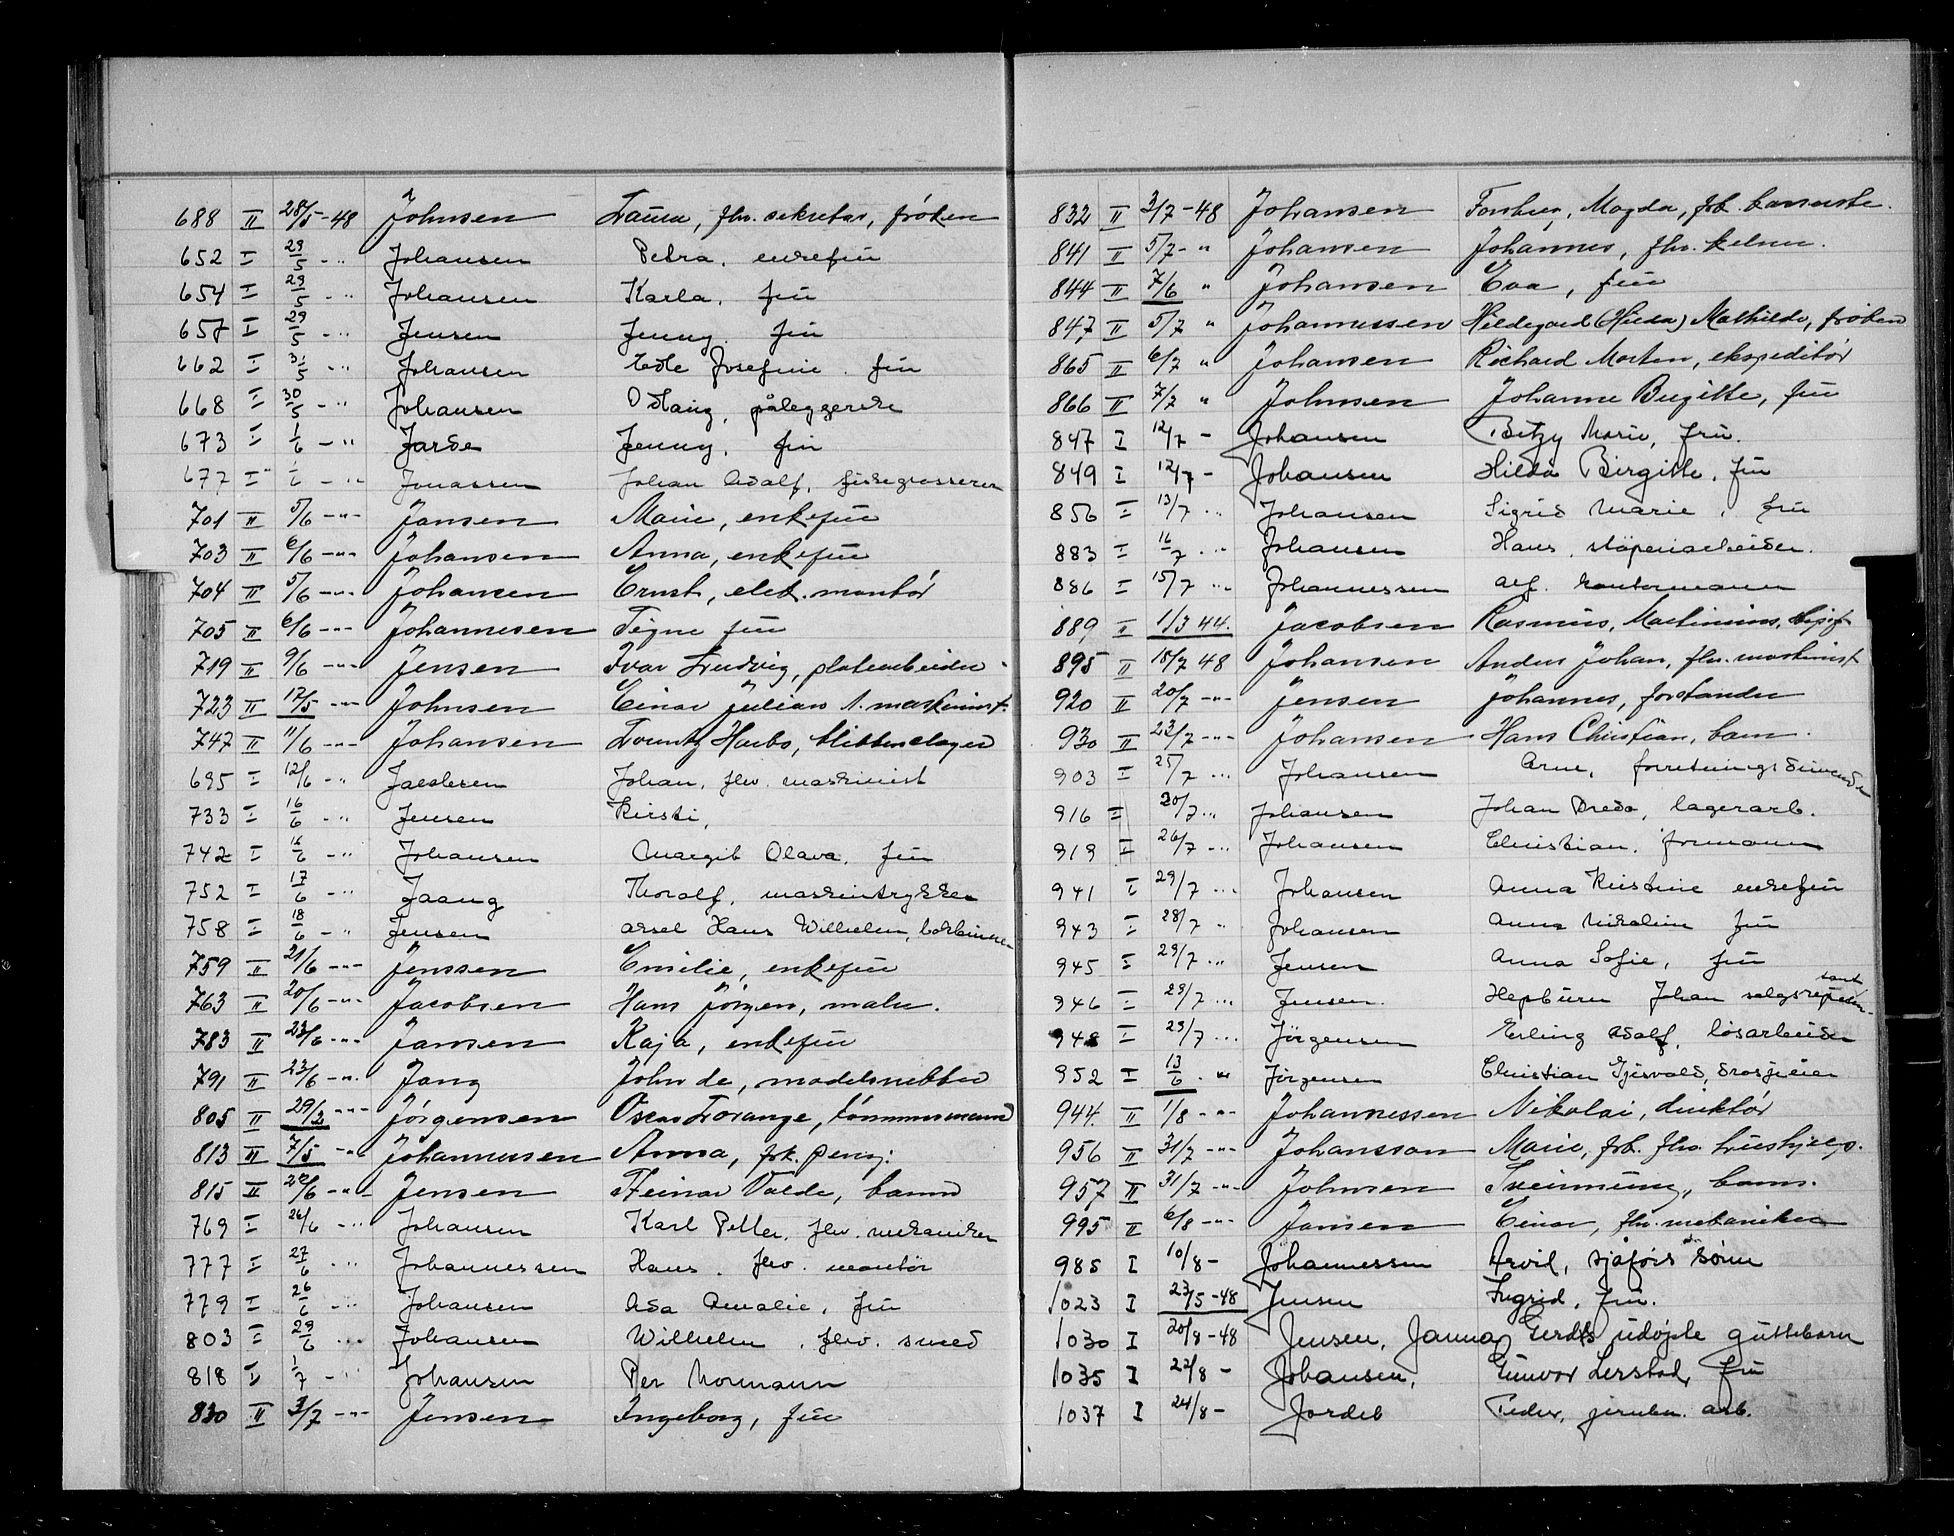 688 II 28/5-48 Johnsen Laura, fhv. sekretær, fröken
652 I 29/5 - " Johansen Petra, enkefru
654 I 29/5 - " Johansen Karla, fru
657 I 29/5 - " Jensen Jenny, fru
662 I 31/5 - " Johansen Edle Josefine, fru
668 I 30/5 - " Johansen påleggerske
673 I 1/6 - " Jarde Jenny, fru
677 I 1/6 - " Jonassen Johan Adolf, fiskegrosserer
701 II 5/6 -"- Jansen Marie, enkefru
703 II 6/6 -"- Johansen Anna, enkefru
704 II 5/6 -"- Johansen Ernst, elek. montör
705 II 6/6 -"- Johannesen Signe fru
719 II 9/6 -"- Jensen Ivar Ludvig, platearbeider
723 II 12/5 -"- Johnsen Einar Julian 1. maskinist
747 II 11/6 -"- Johansen Harbo, blikkenslager
695 I 12/6 - " Jacobsen Johan, fhv. maskinist
733 I 16/6 - " Jensen Kirsti,
742 I 16/6 - " Johansen Margit Olava, fru
752 I 17/6 - " Jaang Thoralf, maskintrykker
758 I 18/6 - " Jensen Aksel Hans Wilhelm, bokbinder
759 II 21/6 -"- Jenssen Emilie, enkefru
763 II 20/6 -"- Jacobsen Hans Jörgen, maler.
783 II 23/6 -"- Jansen Kaja, enkefru
791 II 23/6 -"- Jang John de, modelsnekker
805 II 29/3 -"- Jörgensen Oscar Lorange, tömmermann
813 II 7/5 -"- Johannesen Anna, frk. pensj.
815 II 22/6 -"- Jensen Steinar Valde, barn
769 I 26/6 - " Johansen Karl Petter, fhv. mekaniker
777 I 27/6 - " Johannessen Hans, fhv. montör
779 I 26/6 - " Johansen Asa Amalie, fru
803 I 29/6 - " Johansen Wilhelm, fhv. smed
818 I 1/7 - " Johansen Per Normann
830 II 3/7 -"- Jensen Ingeborg, fru
832 II 3/7-48 Johansen Magda, frk.
841 II 5/7- " Johansen Johannes, fhv. kelner.
844 II 7/6 " Johansen Eva, fru
847 II 5/7 " Johannessen Hildegard (Hilda) Mathilde, fröken
865 II 6/7 " Johansen Richard Morten, ekspeditör
866 II 7/7 " Johnsen Johanne Birgitte, fru
847 I 12/7 - Johansen Betzy Marie, fru.
849 I 12/7 - Johansen Hilda Birgitte, fru
856 I 13/7 " Johansen Sigrid Marie, fru
883 I 16/7 - " Johansen Hans, støperiarbeider.
886 I 15/7 " Johannessen Alf. kontormann
889 II 1/3 44. Jacobsen Rasmus, Martinius,
895 II 18/7 48 Johansen Anders Johan, fhv. maskinist
920 II 20/7 -"- Jensen Johannes, forstander
930 II 23/7 -"- Johansen Hans Christian, barn.
903 I 25/7 - " Johansen Arne, forretningsdrivende
916 I 20/7 - " Johansen Johan Dreda, lagerarb.
919 I 26/7 - " Johansen Christian, formann
941 I 29/7 - " Johansen Anna Kristine enkefru
943 I 28/7 " Johansen Anna Nikoline fru
945 I 29/7 - " Jensen Anna Sofie, fru
946 I 29/7 - " Jensen. Hepburn Johan salgsrepresentant
948 I 29/7 - " Jörgensen Erling Adolf, løsarbeider
952 I 13/6 - " Jörgensen Christian drosjeeier
944. II 1/8 -"- Johannessen Nikolai, direktör
956 II 31/7 -"- Johansson Marie, frk. fhv. hushjelp.
957 II 31/7 -"- Johnsen Sveinung, barn.
995 II 6/8 -"- Jansen Einar, fhv. mekaniker
985 I 10/8- Johannessen Arvid, sjåförs sönn
1023 I 23/5-48 Jensen Ingrid, fru.
1030 I 20/8-48 Jensen, Janna Gerdts udöpte guttebarn
1035 I 22/8 - Johansen, Gunvor Lerstad, fru
1037 I 24/8 - Jordet Peder, jernbn. arb.